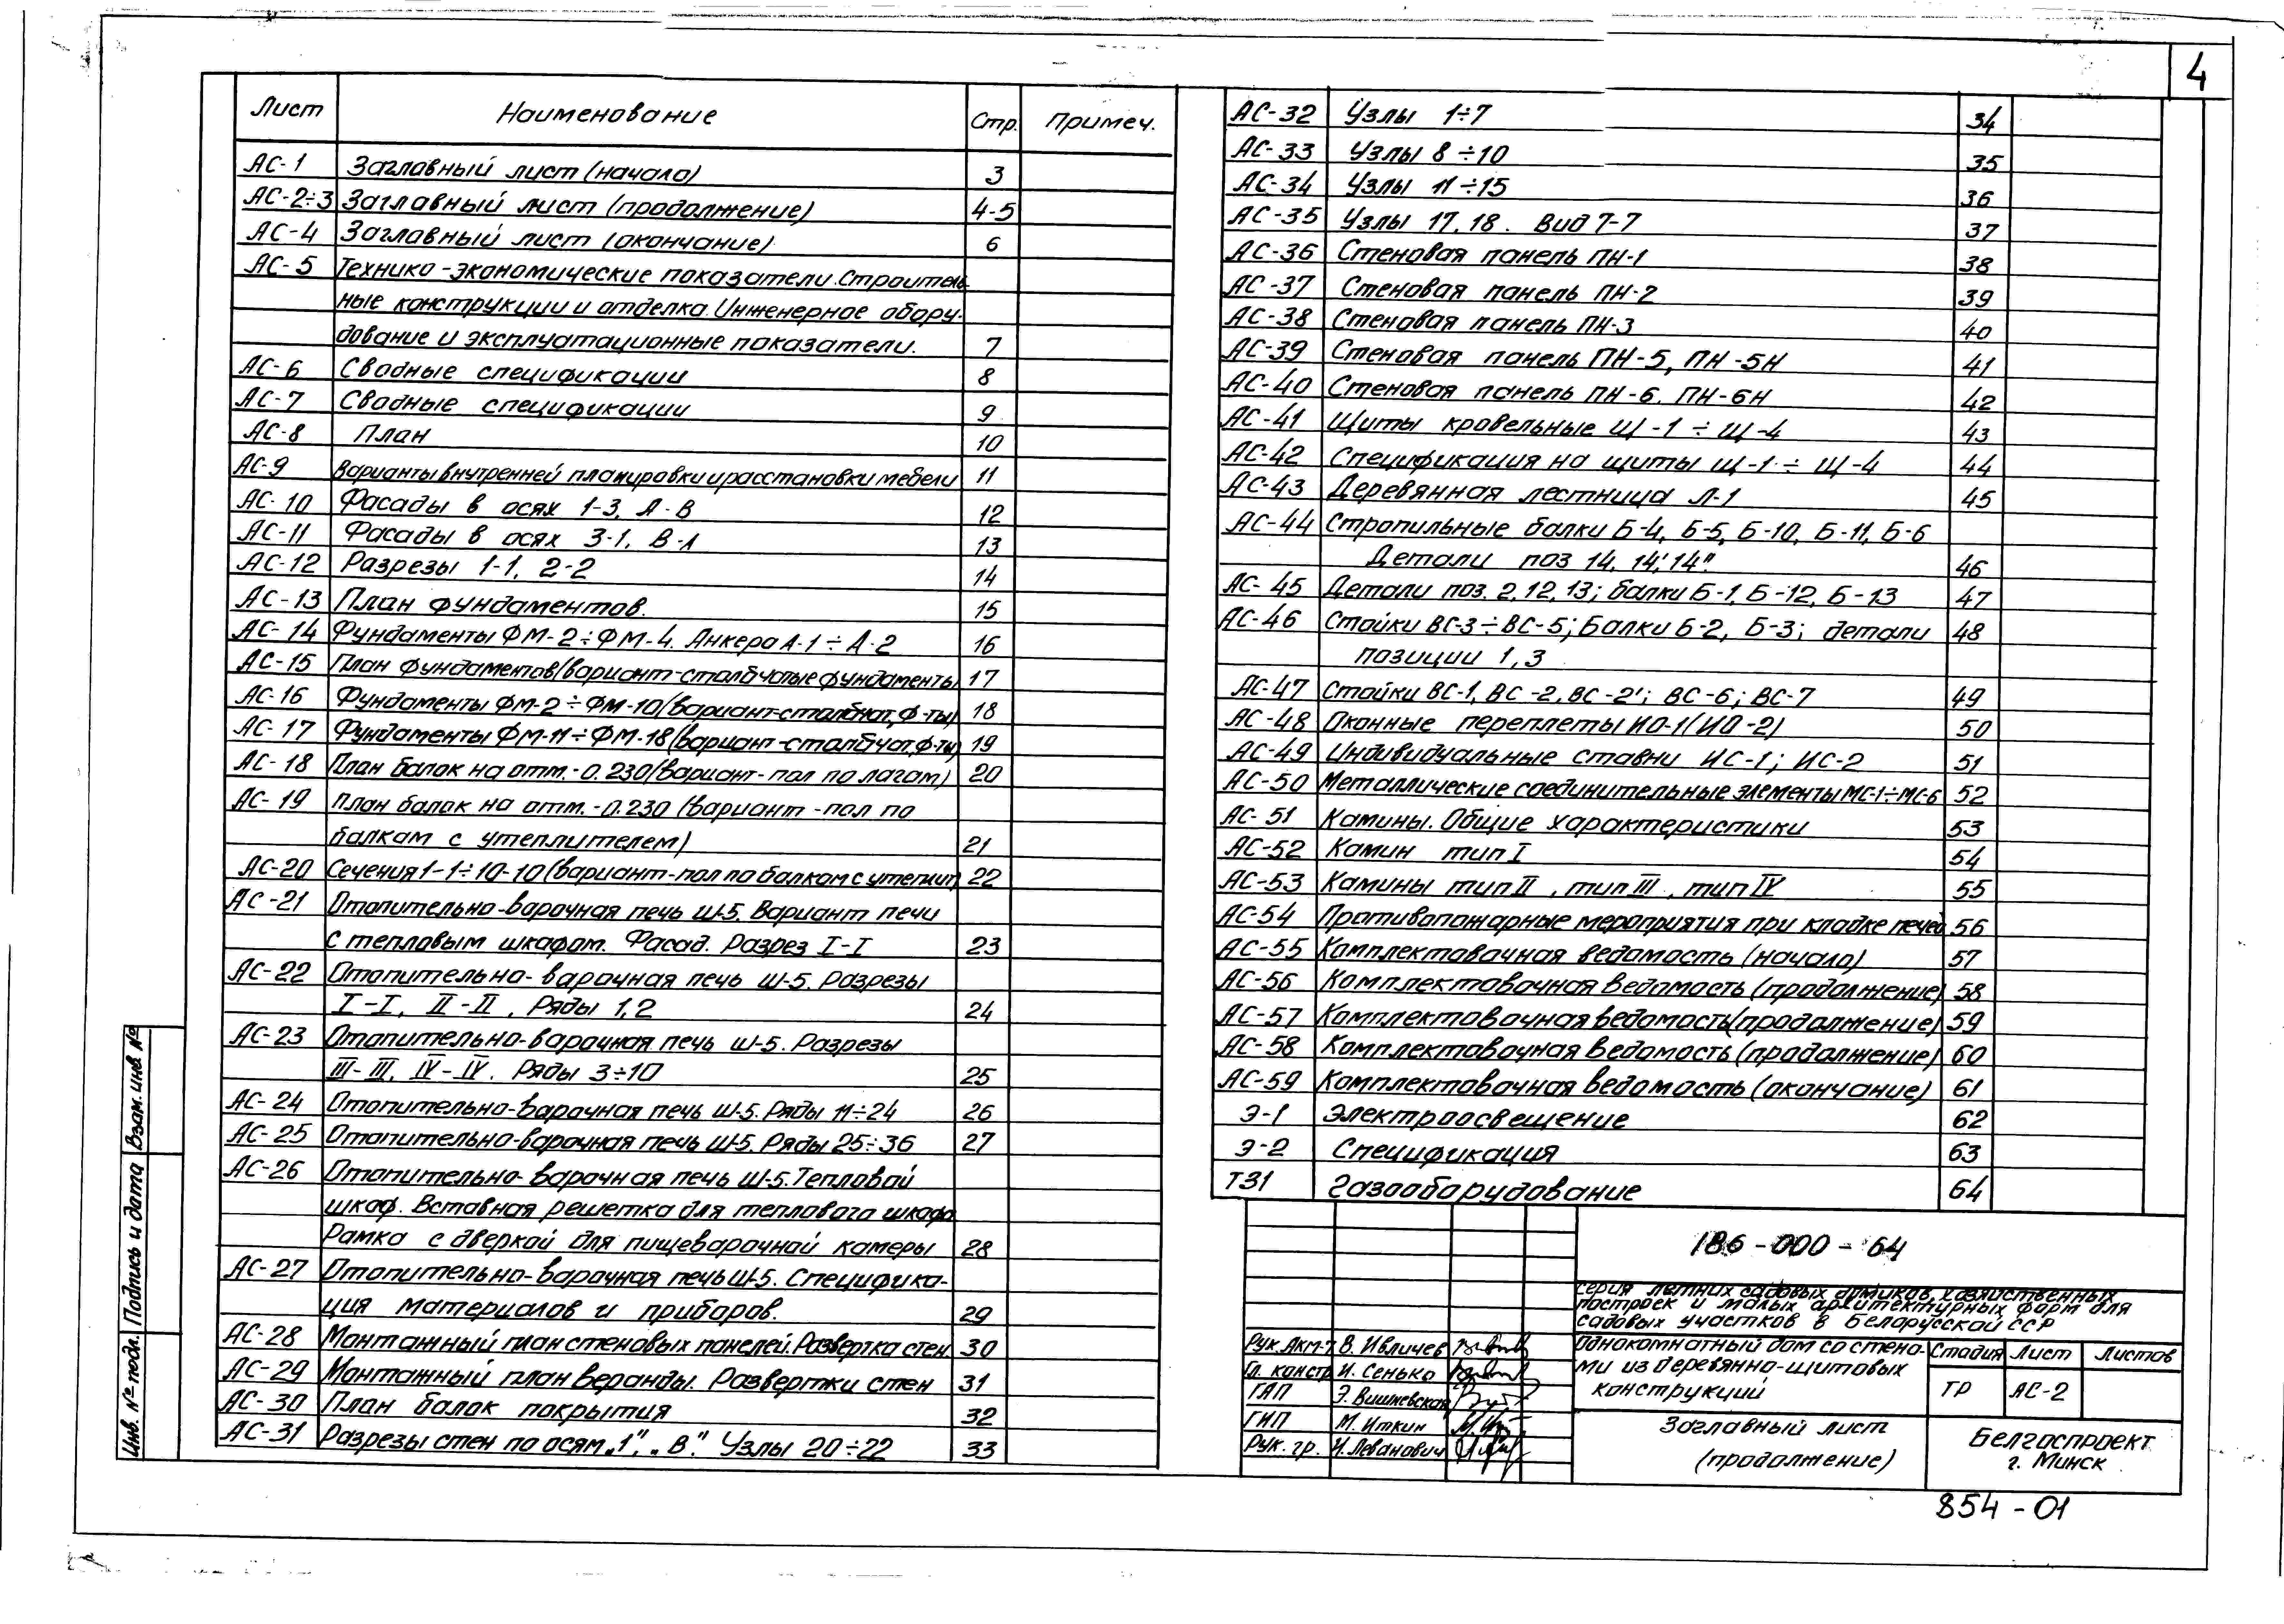 4
Лист Наименование Стр. Примеч.
АС-1 Заглавный лист (начало) 3
АС-2÷3 Заглавный лист (продолжение) 4-5
АС-4 Заглавный лист (окончание) 6
АС-5 Технико-экономические показатели. Строитель-
ные конструкции и отделка. Инженерное обору-
дование и эксплуатационные показатели. 7
АС-6 Сводные спецификации 8
АС-7 Сводные спецификации 9
АС-8 План 10
АС-9 Варианты внутренней планировки и расстановки мебели 11
АС-10 Фасады в осях 1-3, А-В 12
АС-11 Фасады в осях 3-1, В-А 13
АС-12 Разрезы 1-1, 2-2 14
АС-13 План фундаментов. 15
АС-14 Фундаменты ФМ-2÷ФМ-4. Анкера А-1÷А-2 16
АС-15 План фундаментов (вариант-столбчатые фундаменты) 17
АС-16 Фундаменты ФМ-2÷ФМ-10 (вариант-столбчат. ф-ты) 18
АС-17 Фундаменты ФМ-11÷ФМ-18 (вариант-столбчат. ф-ты) 19
АС-18 План балок на отм.-0.230 (вариант-пол по лагам) 20
АС-19 План балок на отм.-0.230 (вариант-пол по
балкам с утеплителем) 21
АС-20 Сечения 1-1÷10-10 (вариант-пол по балкам с утеплит) 22
АС-21 Отопительно-варочная печь Ш-5. Вариант печи
с тепловым шкафом. Фасад. Разрез I-I 23
АС-22 Отопительно-варочная печь Ш-5. Разрезы
I-I, II-II, Ряды 1,2 24
АС-23 Отопительно-варочная печь Ш-5. Разрезы
III-III, IV-IV. Ряды 3÷10 25
АС-24 Отопительно-варочная печь Ш-5. Ряды 11÷24 26
АС-25 Отопительно-варочная печь Ш-5. Ряды 25÷36 27
АС-26 Отопительно-варочная печь Ш-5. Тепловой
шкаф. Вставная решетка для теплового шкафа
Рамка с дверкой для пищеварочной камеры 28
АС-27 Отопительно-варочная печь Ш-5. Специфика-
ция материалов и приборов. 29
АС-28 Монтажный план стеновых панелей. Развертка стен 30
АС-29 Монтажный план веранды. Развертки стен 31
АС-30 План балок покрытия 32
АС-31 Разрезы стен по осям „1", „В". Узлы 20÷22 33
АС-32 Узлы 1÷7 34
АС-33 Узлы 8÷10 35
АС-34 Узлы 11÷15 36
АС-35 Узлы 17, 18. Вид 7-7 37
АС-36 Стеновая панель ПН-1 38
АС-37 Стеновая панель ПН-2 39
АС-38 Стеновая панель ПН-3 40
АС-39 Стеновая панель ПН-5, ПН-5Н 41
АС-40 Стеновая панель ПН-6, ПН-6Н 42
АС-41 Щиты кровельные Щ-1÷Щ-4 43
АС-42 Спецификация на щиты Щ-1÷Щ-4 44
АС-43 Деревянная лестница Л-1 45
АС-44 Стропильные балки Б-4, Б-5, Б-10, Б-11, Б-6
Детали поз 14, 14', 14". 46
АС-45 Детали поз. 2, 12, 13; балки Б-1, Б-12, Б-13 47
АС-46 Стойки ВС-3÷ВС-5; Балки Б-2, Б-3; детали 48
позиции 1,3
АС-47 Стойки ВС-1, ВС-2, ВС-2'; ВС-6; ВС-7 49
АС-48 Оконные переплеты ИО-1 (ИО-2) 50
АС-49 Индивидуальные ставни ИС-1; ИС-2 51
АС-50 Металлические соединительные элементы МС-1÷МС-6 52
АС-51 Камины. Общие характеристики 53
АС-52 Камин тип I 54
АС-53 Камины тип II, тип III, тип IV 55
АС-54 Противопожарные мероприятия при кладке печей 56
АС-55 Комплектовочная ведомость (начало) 57
АС-56 Комплектовочная ведомость (продолжение) 58
АС-57 Комплектовочная ведомость (продолжение) 59
АС-58 Комплектовочная ведомость (продолжение) 60
АС-59 Комплектовочная ведомость (окончание) 61
Э-1 Электроосвещение 62
Э-2 Спецификация 63
ТЗ1 Газооборудование 64
186-000-64
серия летних садовых домиков, хозяйственных
построек и малых архитектурных форм для
садовых участков в Белорусской ССР
Рук. Акм-7 В. Ивличев
Гл. констр. И. Сенько
ГАП Э. Вишневская
ГИП М. Иткин
Рук. гр. И. Леванович
Однокомнатный дом со стена-
ми из деревянно-щитовых
конструкций
Стадия Лист Листов
ТР АС-2
Заглавный лист
(продолжение)
Белгоспроект
г. Минск
854-01
Инв. № подл. Подпись и дата Взам. инв. №